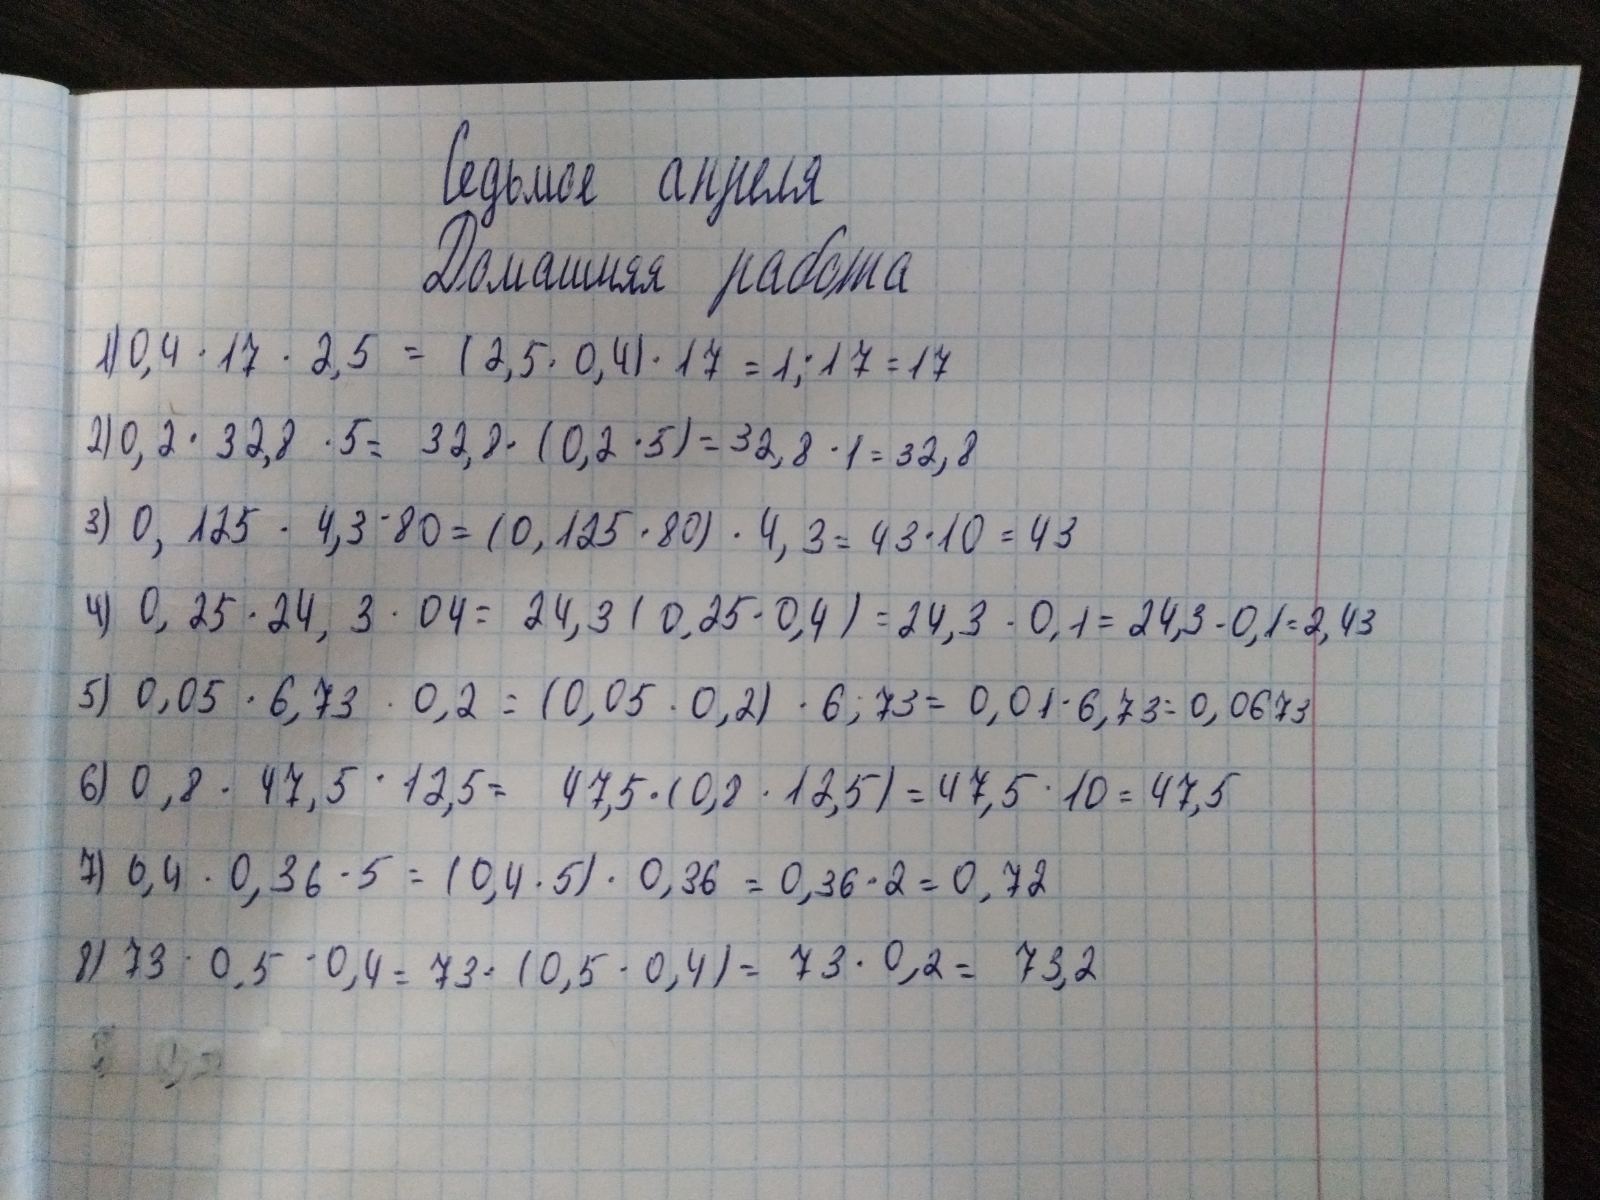 Седьмое апреля
Домашняя работа
1) 0,4 · 17 · 2,5 = (2,5 · 0,4) · 17 = 1 · 17 = 17
2) 0,2 · 32,8 · 5 = 32,8 · (0,2 · 5) = 32,8 · 1 = 32,8
3) 0,125 · 4,3 · 80 = (0,125 · 80) · 4,3 = 43 · 10 = 43
4) 0,25 · 24,3 · 04 = 24,3 (0,25 · 0,4) = 24,3 · 0,1 = 24,3 · 0,1 = 2,43
5) 0,05 · 6,73 · 0,2 = (0,05 · 0,2) · 6;73 = 0,01 · 6,73 = 0,0673
6) 0,8 · 47,5 · 12,5 = 47,5 · (0,8 · 12,5) = 47,5 · 10 = 47,5
7) 0,4 · 0,36 · 5 = (0,4 · 5) · 0,36 = 0,36 · 2 = 0,72
8) 73 · 0,5 · 0,4 = 73 · (0,5 · 0,4) = 73 · 0,2 = 73,2